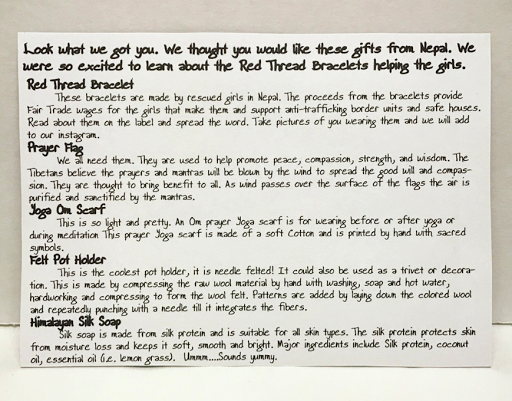 Look what we got you. We thought you would like these gifts from Nepal. We
were so excited to learn about the Red Thread Bracelets helping the girls.
Red Thread Bracelet
These bracelets are made by rescued girls in Nepal. The proceeds from the bracelets provide
Fair Trade wages for the girls that make them and support anti-trafficking border units and safe houses.
Read about them on the label and spread the word. Take pictures of you wearing them and we will add
to our instagram.
Prayer Flag
We all need them. They are used to help promote peace, compassion, strength, and wisdom. The
Tibetans believe the prayers and mantras will be blown by the wind to spread the good will and compas-
sion. They are thought to bring benefit to all. As wind passes over the surface of the flags the air is
purified and sanctified by the mantras.
Yoga Om Scarf
This is so light and pretty. An Om prayer Yoga scarf is for wearing before or after yoga or
during meditation This prayer Yoga scarf is made of a soft Cotton and is printed by hand with sacred
symbols.
Felt Pot Holder
This is the coolest pot holder, it is needle felted! It could also be used as a trivet or decora-
tion. This is made by compressing the raw wool material by hand with washing, soap and hot water,
hardworking and compressing to form the wool felt. Patterns are added by laying down the colored wool
and repeatedly punching with a needle till it integrates the fibers.
Himalayan Silk Soap
Silk soap is made from silk protein and is suitable for all skin types. The silk protein protects skin
from moisture loss and keeps it soft, smooth and bright. Major ingredients include Silk protein, coconut
oil, essential oil (i.e. lemon grass). Ummm....Sounds yummy.